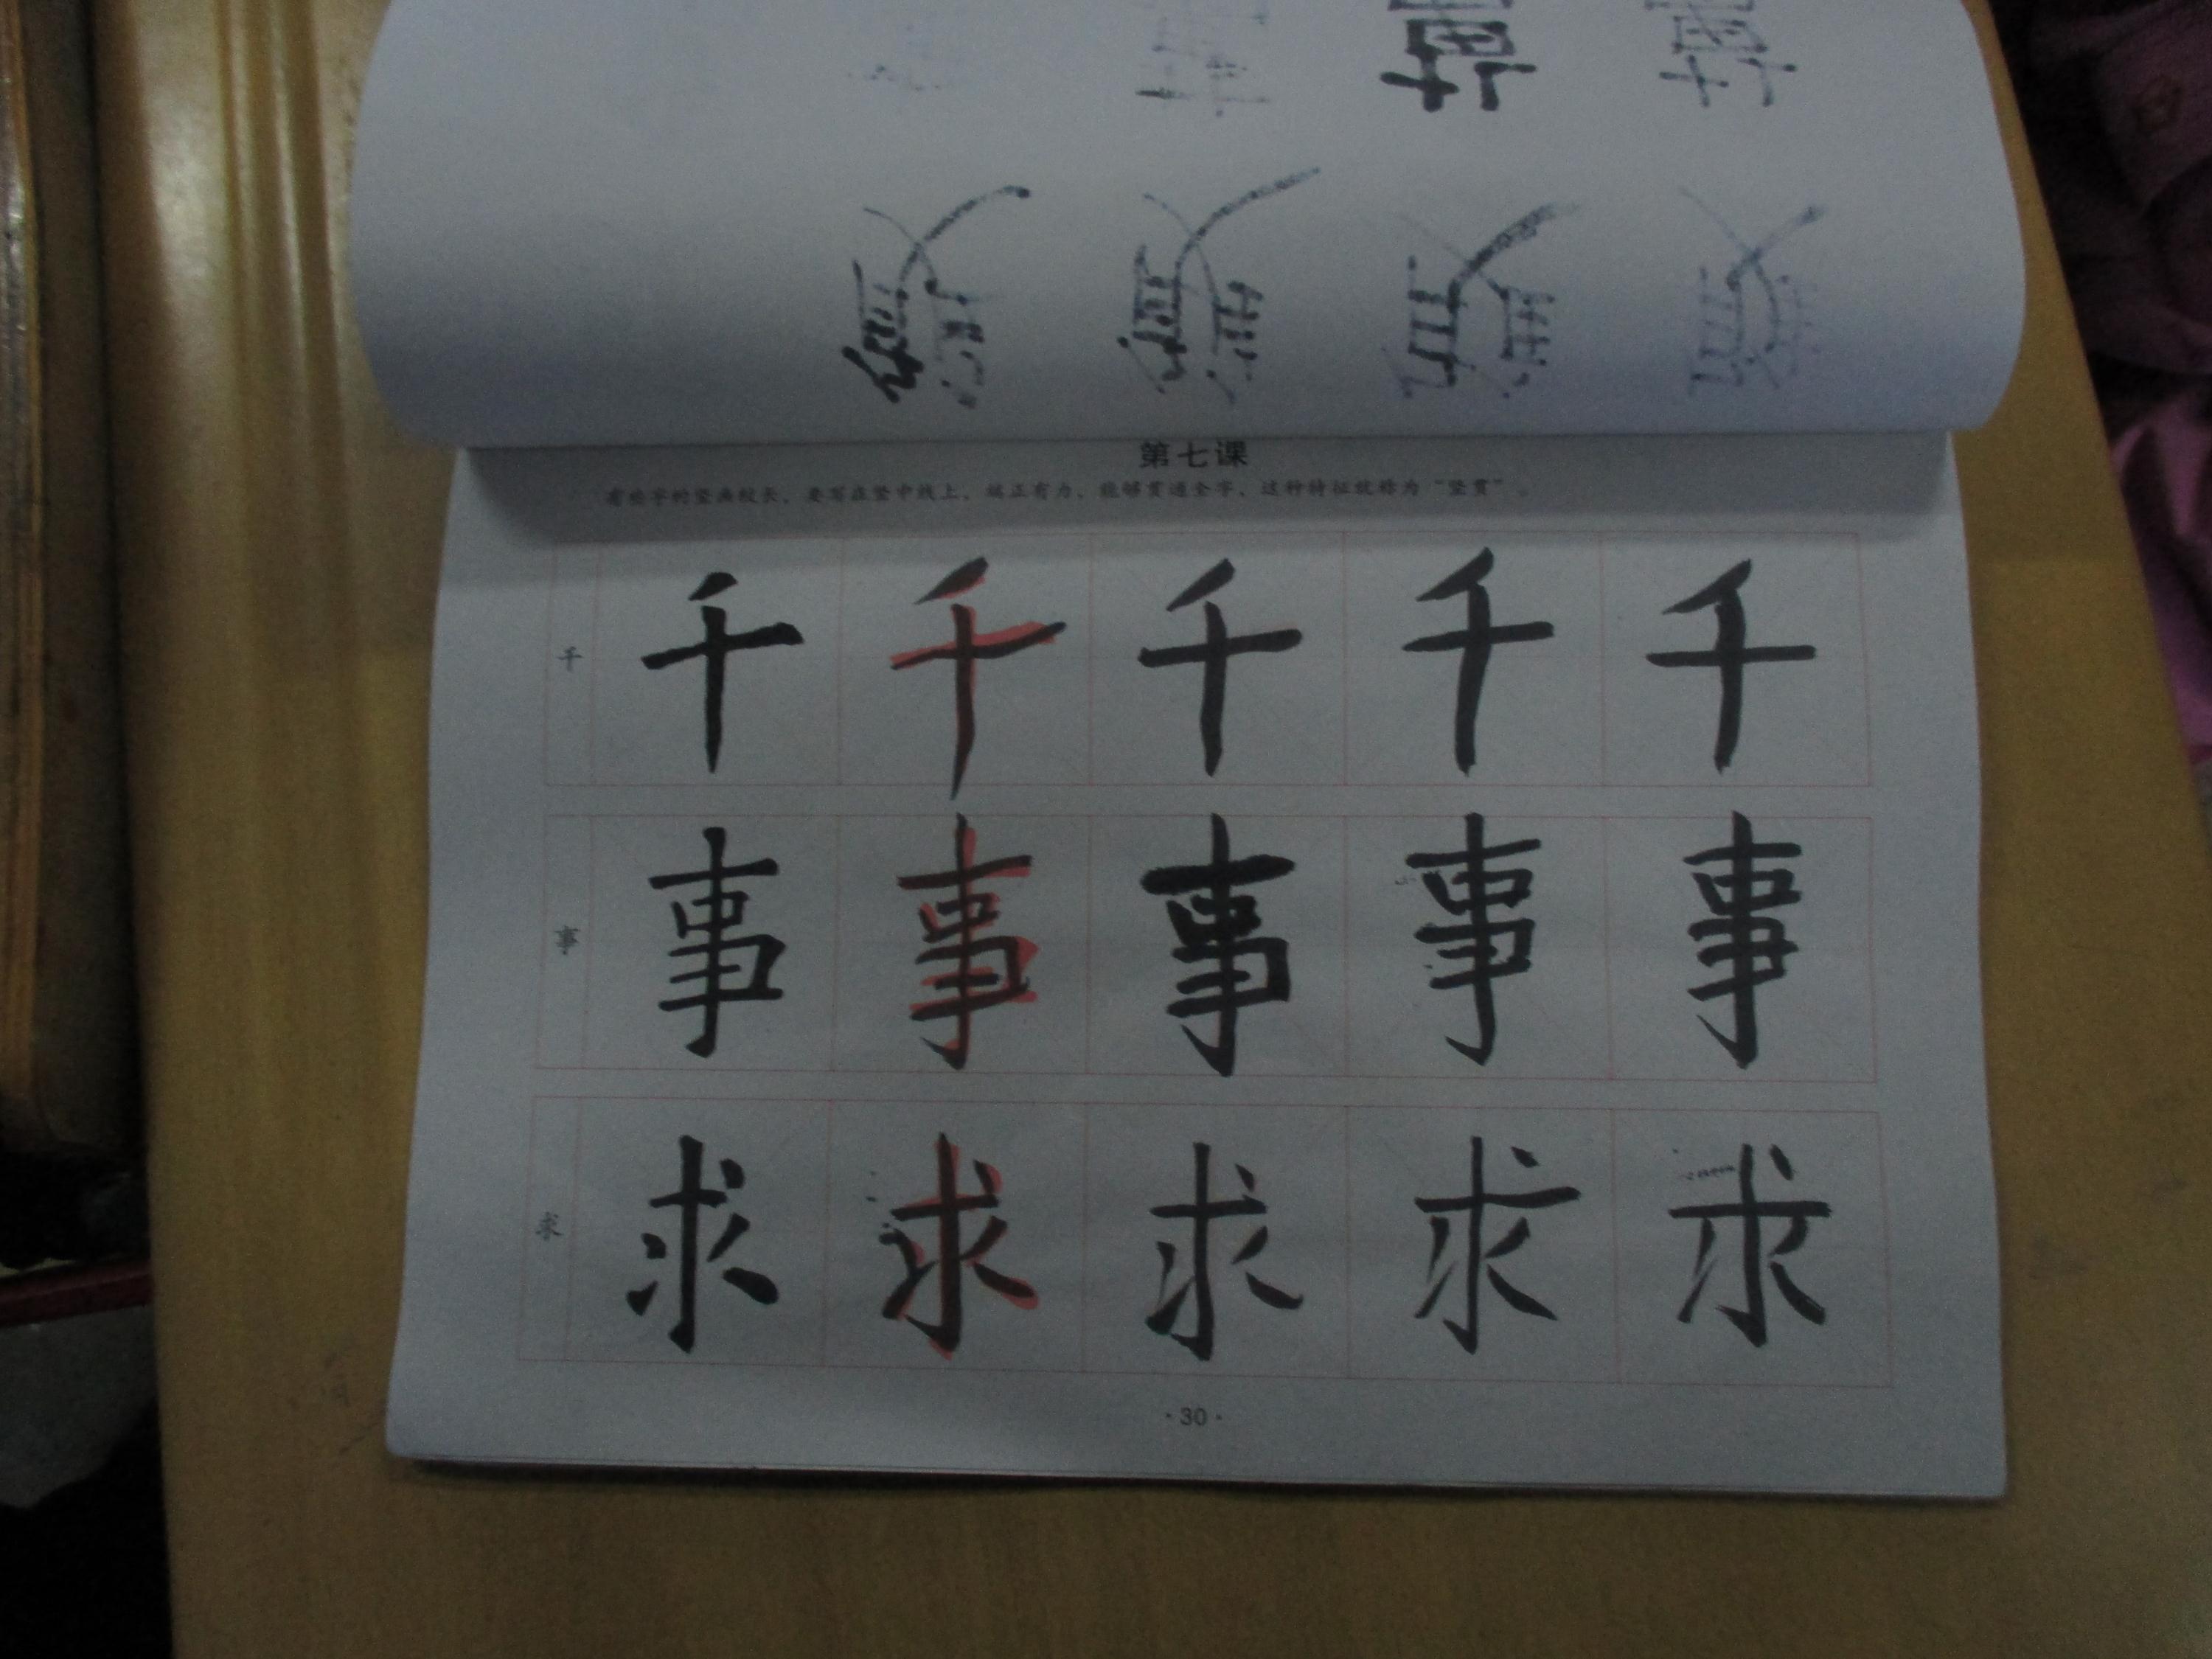 第七课
有些字的竖画较长，要写在竖中线上，端正有力，能够贯通全字，这种特征就称为“竖贯”。
千 千 千 千 千 千
事 事 事 事 事 事
求 求 求 求 求 求
·30·